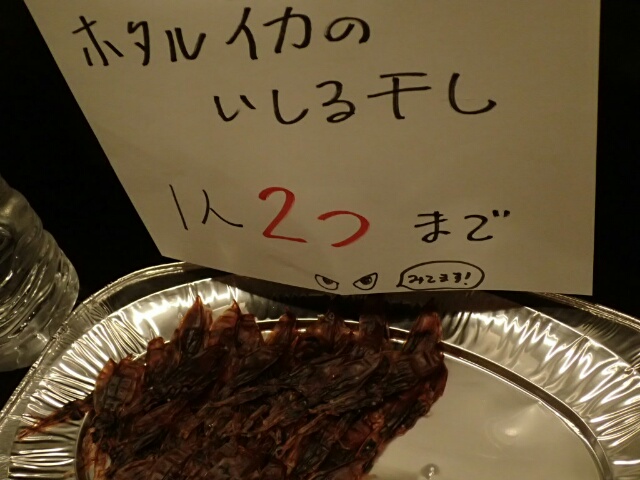 ホタルイカの
いしる干し
1人2つまで
みてます!